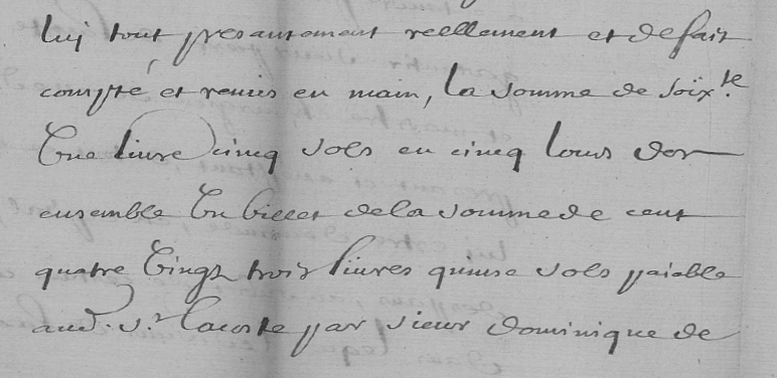 luj tout presantement reellement et de fait
compté et remis en main, la somme de soixte.
Une livre cinq sols en cinq louis dor
ensemble Un billet de la somme de cent
quatre Vingt trois livres quinse sols paiable
aud. sr. Lacoste par sieur Dominique de